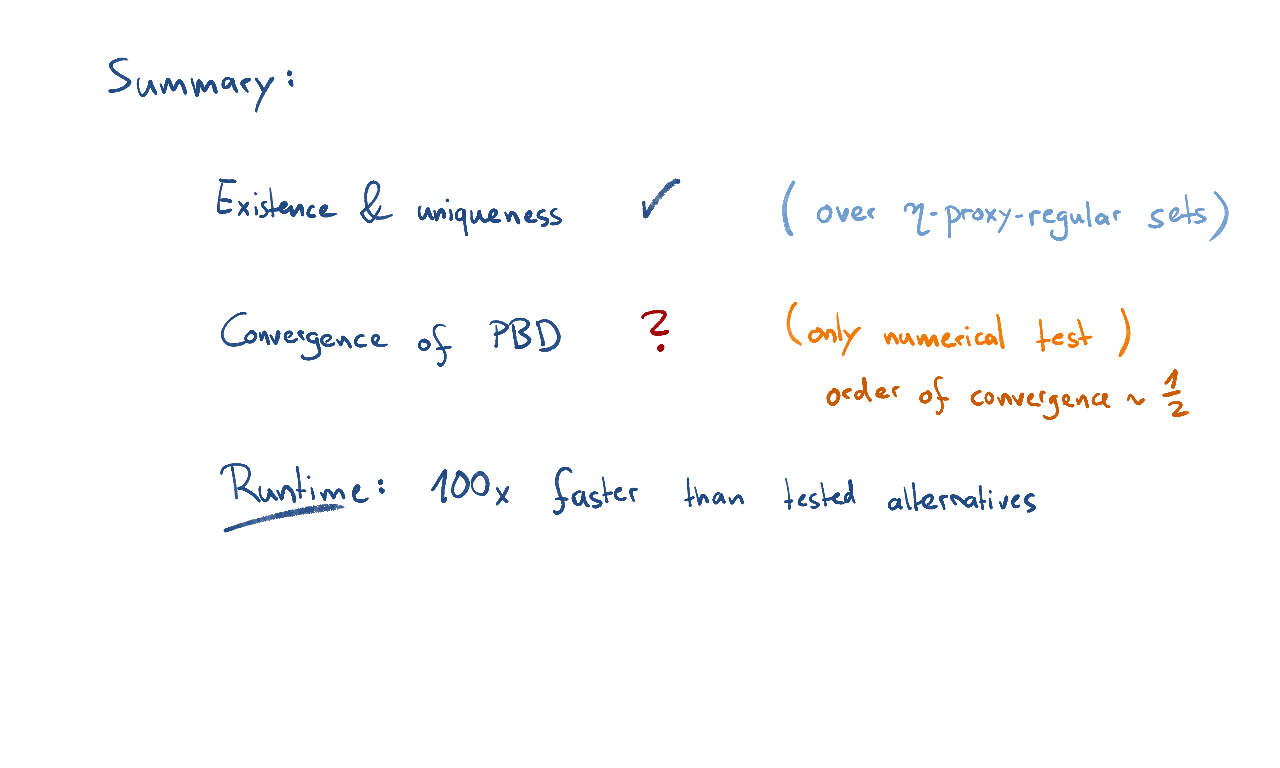 Summary:
Existence & uniqueness ✓ (over η-proxy-regular sets)
Convergence of PBD ? (only numerical test)
order of convergence ~ 1/2
Runtime: 100x faster than tested alternatives